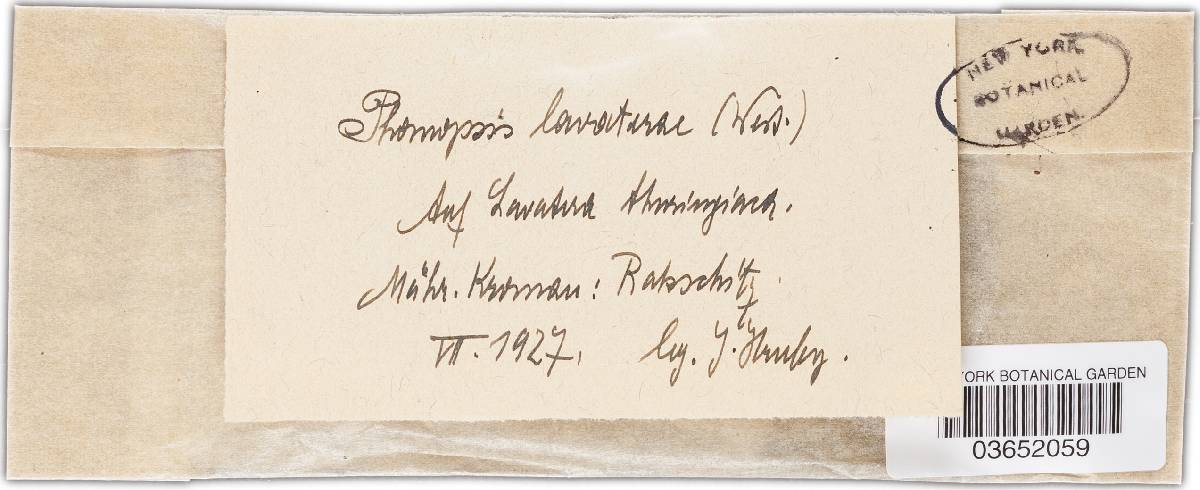 Phomopsis lavaterae (West.)
Auf Lavatera thuringiaca.
Mähr. Kromau: Rakschitz.
VII. 1927. leg. J. Hruby.
NEW YORK
BOTANICAL
GARDEN.
YORK BOTANICAL GARDEN
03652059